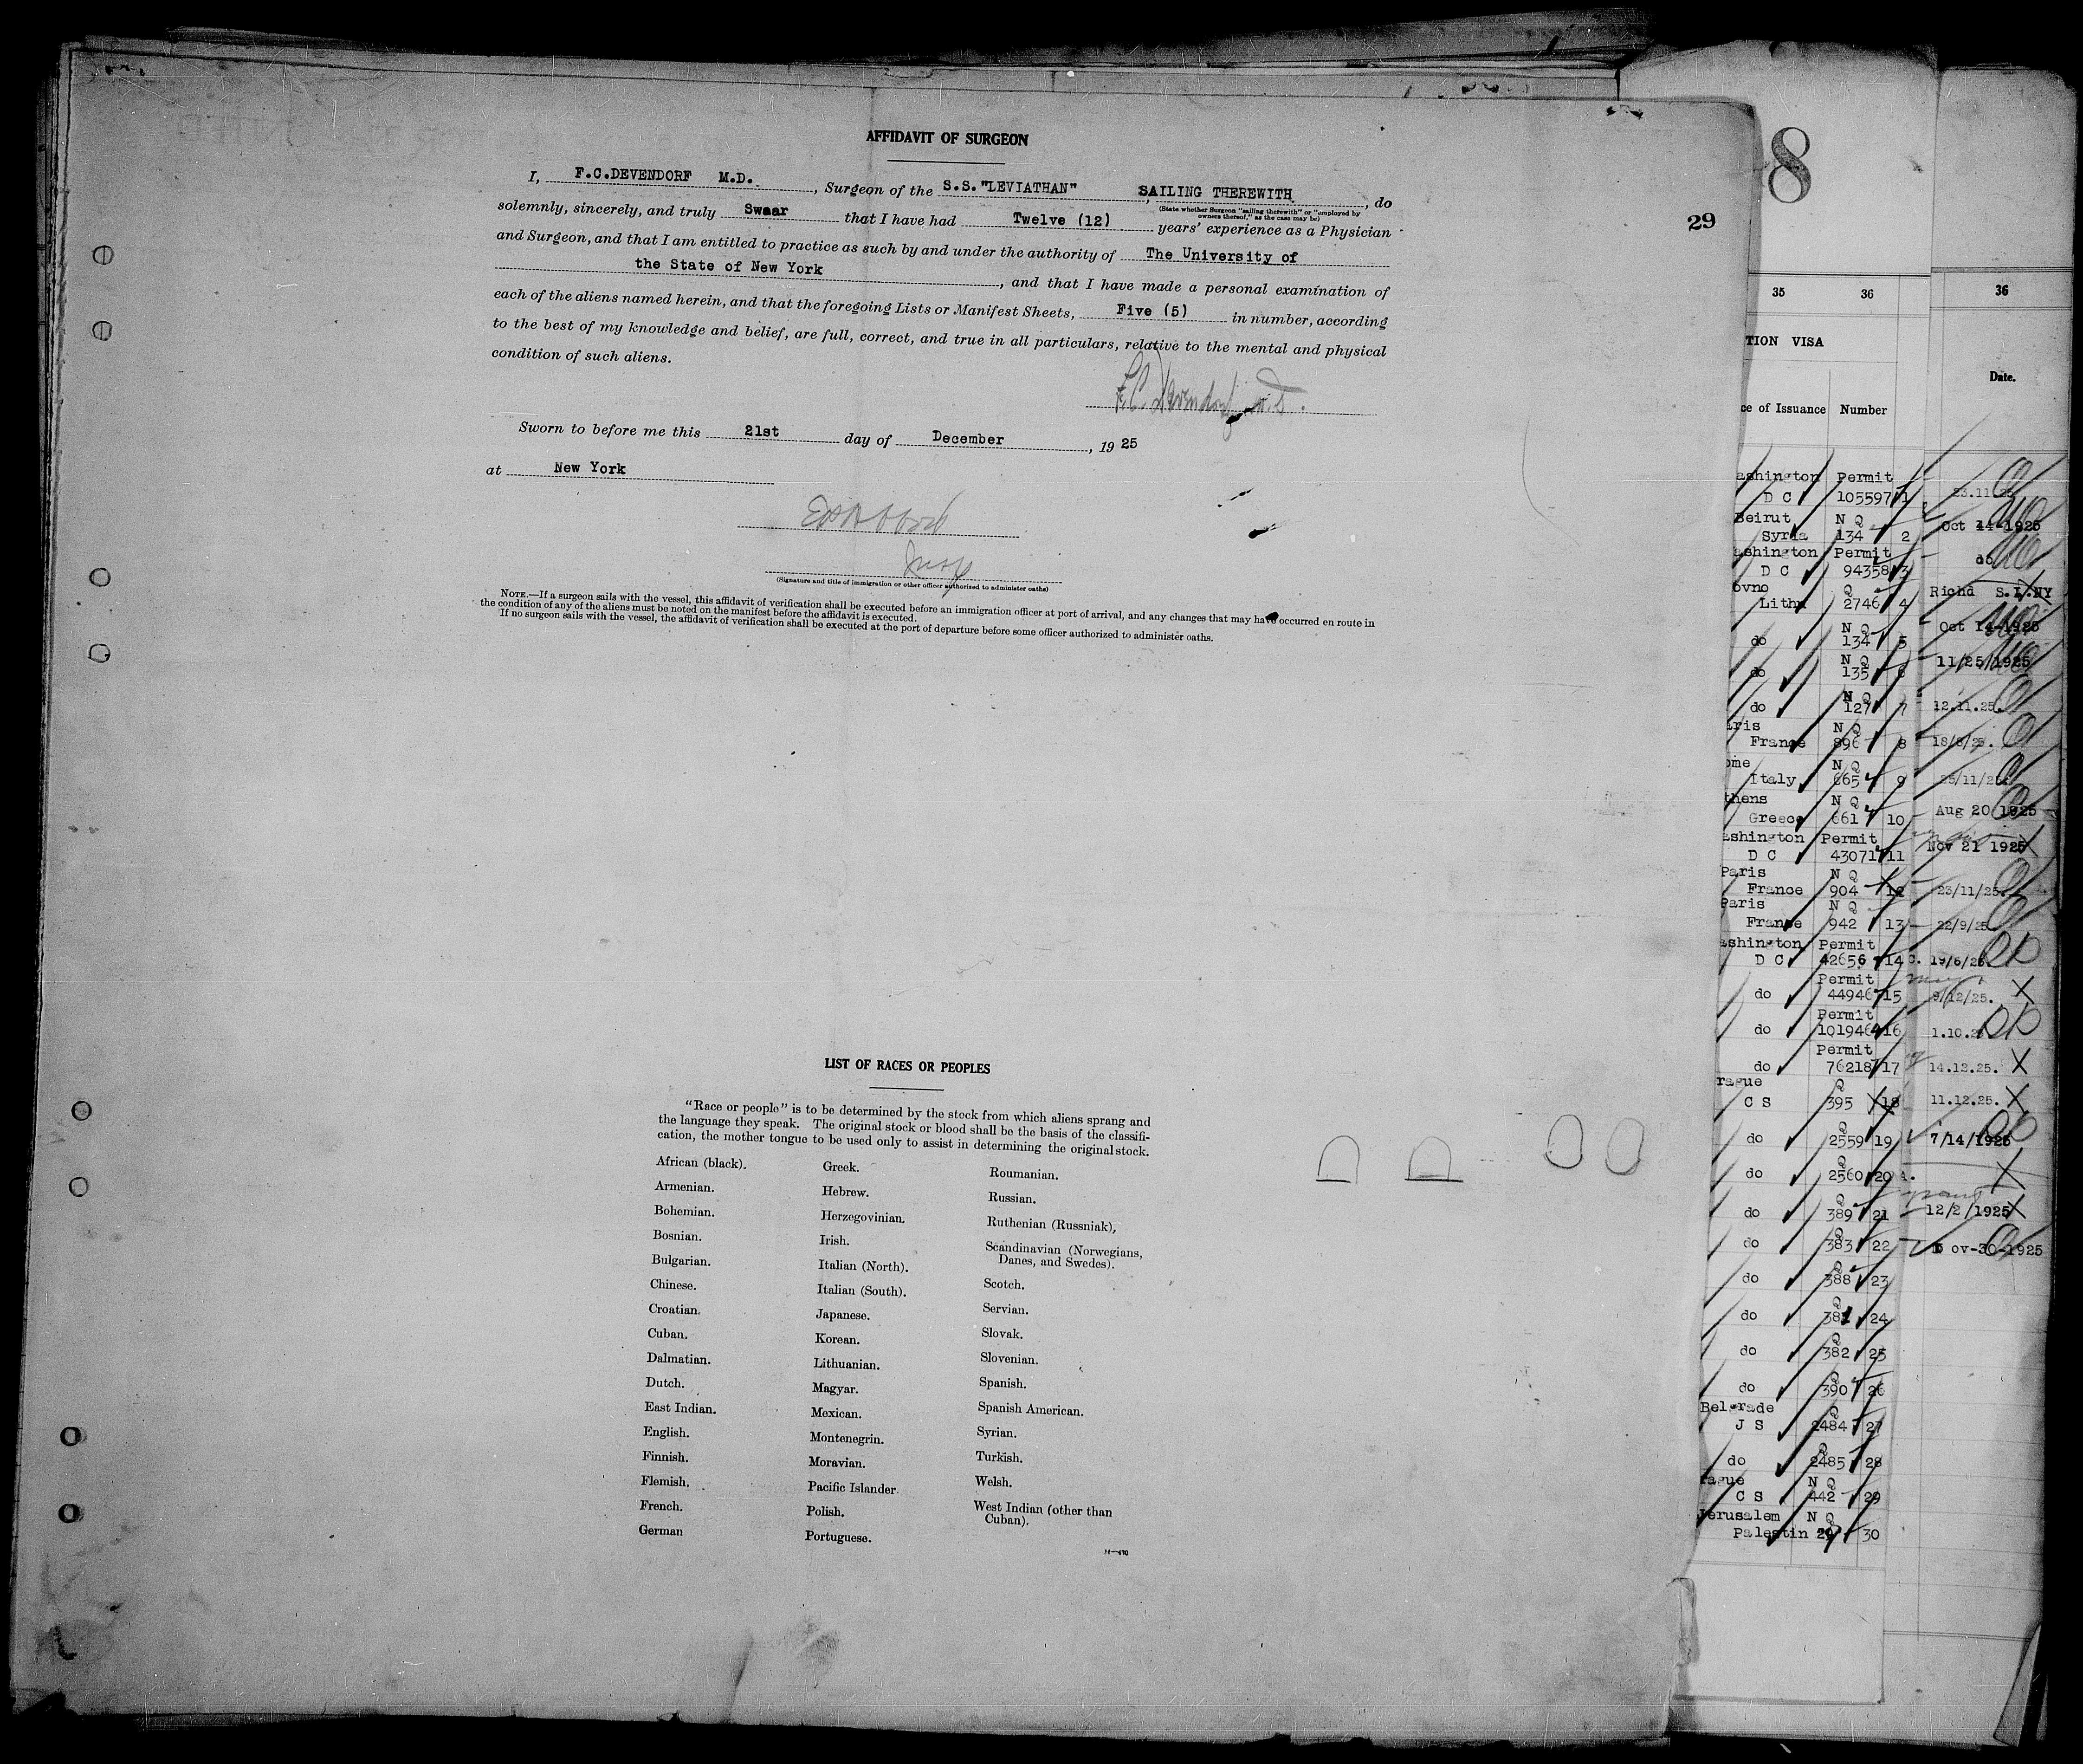 AFFIDAVIT OF SURGEON
I, F.C.DEVENDORF M.D., Surgeon of the S.S."LEVIATHAN", SAILING THEREWITH, do
(State whether Surgeon "sailing therewith" or "employed by
owners thereof," as the case may be)
solemnly, sincerely, and truly Swear that I have had Twelve (12) years' experience as a Physician
and Surgeon, and that I am entitled to practice as such by and under the authority of The University of
the State of New York, and that I have made a personal examination of
each of the aliens named herein, and that the foregoing Lists or Manifest Sheets, Five (5) in number, according
to the best of my knowledge and belief, are full, correct, and true in all particulars, relative to the mental and physical
condition of such aliens.
F.C. Devendorf M.D.
Sworn to before me this 21st day of December, 19 25
at New York
Insp
(Signature and title of immigration or other officer authorized to administer oaths)
NOTE.—If a surgeon sails with the vessel, this affidavit of verification shall be executed before an immigration officer at port of arrival, and any changes that may have occurred en route in
the condition of any of the aliens must be noted on the manifest before the affidavit is executed.
If no surgeon sails with the vessel, the affidavit of verification shall be executed at the port of departure before some officer authorized to administer oaths.
29
LIST OF RACES OR PEOPLES
"Race or people" is to be determined by the stock from which aliens sprang and
the language they speak. The original stock or blood shall be the basis of the classifi-
cation, the mother tongue to be used only to assist in determining the original stock.
African (black).
Armenian.
Bohemian.
Bosnian.
Bulgarian.
Chinese.
Croatian.
Cuban.
Dalmatian.
Dutch.
East Indian.
English.
Finnish.
Flemish.
French.
German
Greek.
Hebrew.
Herzegovinian.
Irish.
Italian (North).
Italian (South).
Japanese.
Korean.
Lithuanian.
Magyar.
Mexican.
Montenegrin.
Moravian.
Pacific Islander
Polish.
Portuguese.
Roumanian.
Russian.
Ruthenian (Russniak),
Scandinavian (Norwegians,
Danes, and Swedes).
Scotch.
Servian.
Slovak.
Slovenian.
Spanish.
Spanish American.
Syrian.
Turkish.
Welsh.
West Indian (other than
Cuban).
8
35 36
TION VISA
ce of Issuance Number
ashington Permit
D C 105597 1
Beirut N Q
Syria 134 2
ashington Permit
D C 94358 3
ovno Q
Lithu 2746 4
N Q
do 134 5
N Q
do 135 6
N Q
do 127 7
aris N Q
France 896 8
ome N Q
Italy 665 9
thens N Q
Greece 661 10
ashington Permit
D C 43071 11
Paris N Q
France 904 12
Paris N Q
France 942 13
ashington Permit
D C 42656 14
Permit
do 44946 15
Permit
do 101946 16
Permit
do 76218 17
rague Q
C S 395 18
Q
do 2559 19
Q
do 2560 20
Q
do 389 21
Q
do 383 22
Q
do 388 23
Q
do 381 24
Q
do 382 25
Q
do 390 26
Belgrade Q
J S 2484 27
Q
do 2485 28
rague N Q
C S 442 29
Jerusalem N Q
Palestin 29 30
36
Date.
23.11.25
Oct 14-1925
do
Richd S.I.NY
Oct 14-1925
11/25/1925
12.11.25.
18/8/25.
25/11/25
Aug 20 1925
Nov 21 1925
23/11/25.
22/9/25
19/6/25
9/12/25.
1.10.25
14.12.25.
11.12.25.
7/14/1925
12/2/1925
ov-30-1925